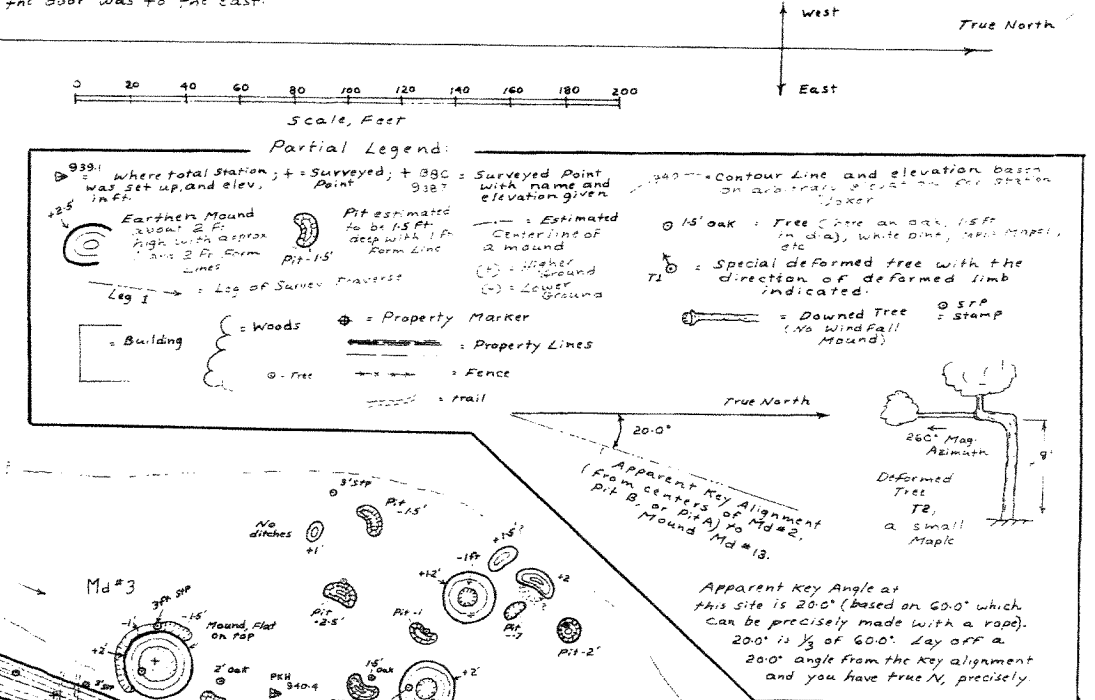 the door was to the East.
West
True North
East
0 20 40 60 80 100 120 140 160 180 200
Scale, Feet
Partial Legend:
939.1
= where total station
was set up, and elev.
in ft.
; + = Surveyed
Point
; + BBC
938.7
= Surveyed Point
with name and
elevation given
= Contour Line and elevation based
on arbitrary
+2.5'
Earthen Mound
about 2 ft
high with approx
1 and 2 Ft Form
Lines
Pit-1.5'
Pit estimated
to be 1.5 Ft.
deep with 1 ft
Form Line
= Estimated
Centerline of
a mound
(+) = Higher
Ground
(-) = Lower
Ground
1.5' oak = Tree (here an oak, 1.5 ft
in dia), white pine,
etc
T2
= Special deformed tree with the
direction of deformed limb
indicated.
Leg 1
= Leg of Survey Traverse
= Downed Tree
(No Wind Fall
Mound)
STP
= Stamp
= Building
= Woods
- Tree
= Property Marker
= Property Lines
= Fence
= trail
True North
20.0°
Apparent Key Alignment
(From centers of Md#2,
Pit B, or Pit A) to
Mound Md #13.
260° Mag.
Azimuth
Deformed
Tree
T2,
a small
Maple
Apparent Key Angle at
this site is 20.0° (based on 60.0° which
can be precisely made with a rope).
20.0° is ⅓ of 60.0°. Lay off a
20.0° angle from the key alignment
and you have true N, precisely.
3' Stp
Pit
-1.5'
No
ditches
+1'
+1.5'?
-1ft
+1.2'
+2
Pit
-2.5'
Pit-1
Pit
-.7
Pit-2'
Md#3
3ft Stp
-1.5'
-1'
+2'
Mound, Flat
on top
2' Stp
2' Oak
PKH
940.4
1.5'
Oak
+2'